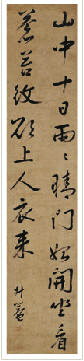 山中十日雨雨晴門始開坐看
蒼苔紋欲上人衣來